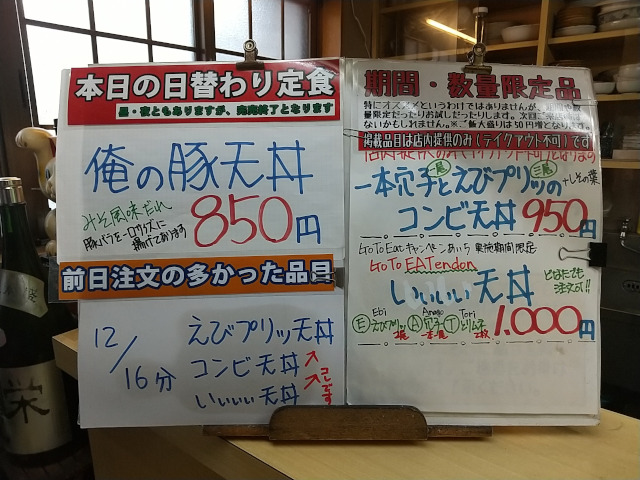 本日の日替わり定食
昼・夜ともありますが、完売終了となります
俺の豚天丼
みそ風味だれ
豚バラを一口サイズに
揚げてあります
850円
前日注文の多かった品目
12/16分
えびプリッ天丼
コンビ天丼
いいいい天丼
コレです
期間・数量限定品
特にオススメというわけではありませんが、
量限定だったりお試しだったりします。次回
ないかもしれません。※ご飯大盛りは50円増となります
掲載品目は店内提供のみ(テイクアウト不可)です
一本穴子とえびプリッの
二尾
+しその葉
コンビ天丼 950円
GoToEatキャンペーンあいち 実施期間限定
GoTo EATendon
いいいい天丼
どなたでも
注文可!!
Ebi Anago Tori
Ⓔえびプリッ Ⓐ穴子 Ⓣとりムネ
2尾 一本 2枚
1.000円
栄